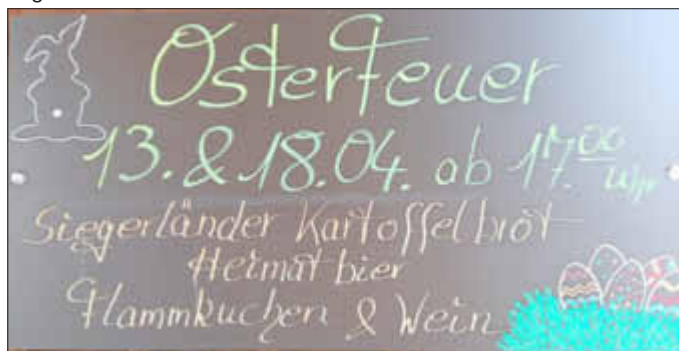 Osterfeuer
13. & 18.04. ab 17.00 Uhr
Siegerländer Kartoffelbrot
Heimatbier
Flammkuchen & Wein